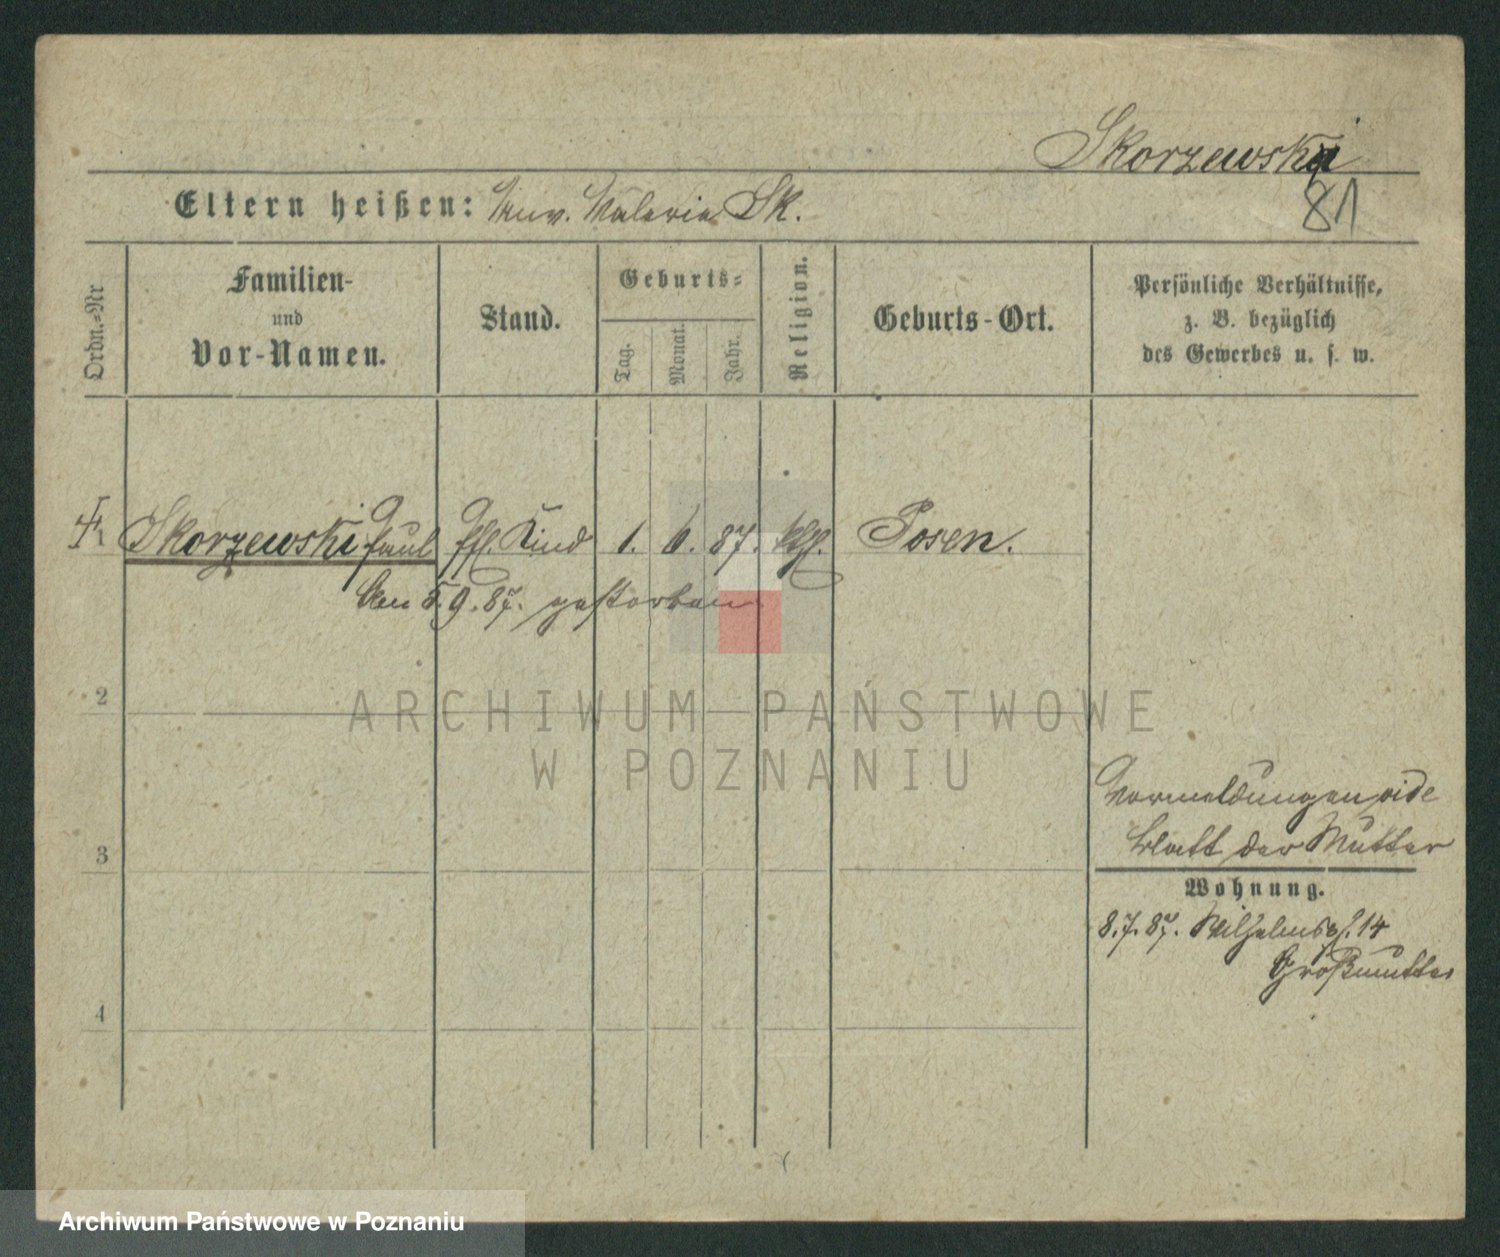 Skorzewski
81
Eltern heißen: Unv. Valeria Sk.
Ordn.-Nr
Familien-
und
Vor-Namen.
Stand.
Geburts-
Tag.
Monat.
Jahr.
Religion.
Geburts-Ort.
Persönliche Verhältnisse,
z. B. bezüglich
des Gewerbes u. s. w.
Skorzewski Paul Kind 1. 6. 87. kth. Posen.
den 5.9.87. gestorben
2
ARCHIWUM PAŃSTWOWE
W POZNANIU
Vormeldungen vide
3
Blatt der Mutter
Wohnung.
8.7.87. Wilhelmspl. 14
Großmutter
4
Archiwum Państwowe w Poznaniu